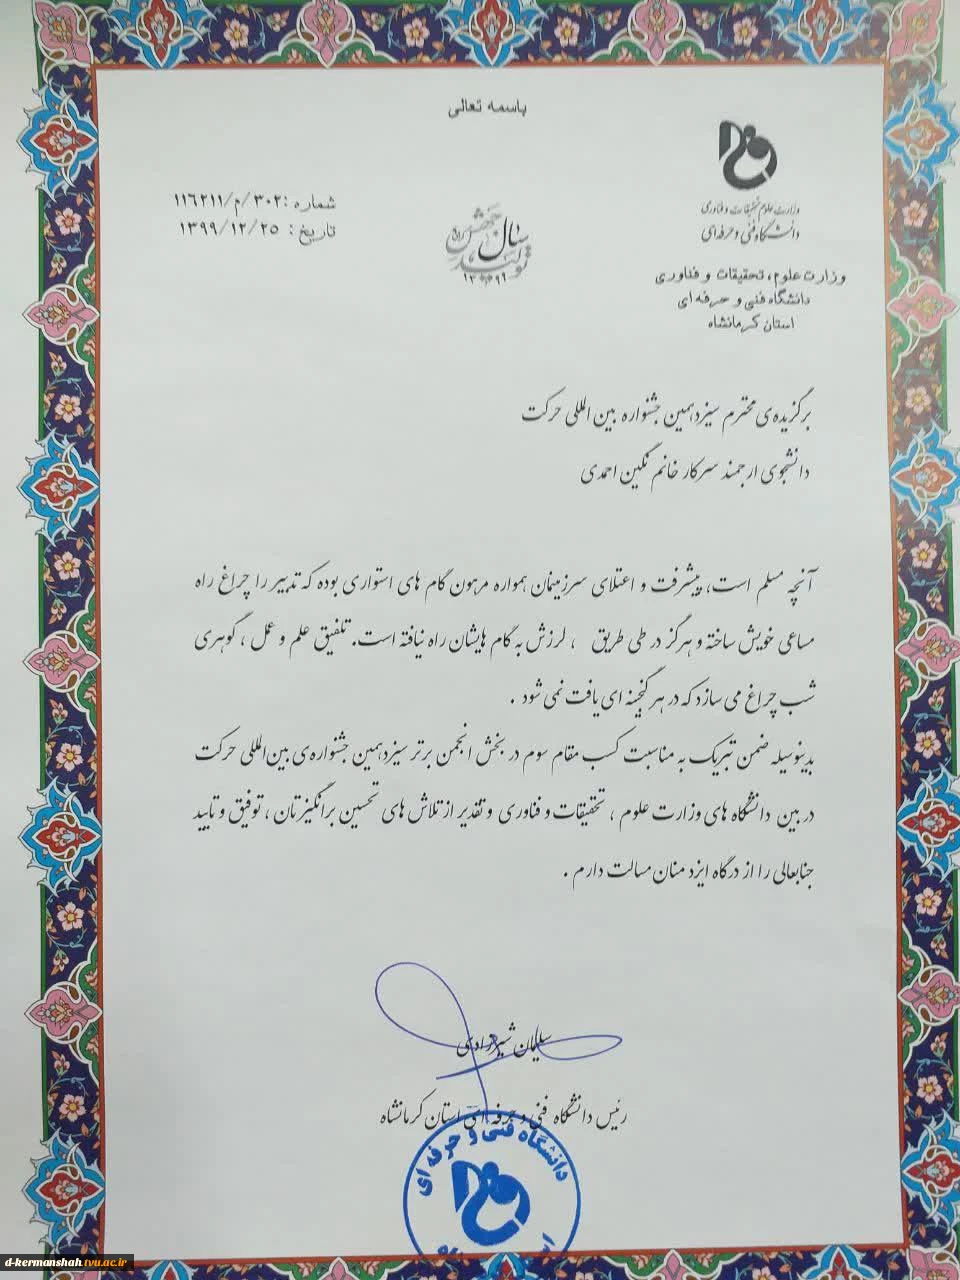 باسمه تعالی
وزارت علوم تحقیقات و فناوری
دانشگاه فنی و حرفه‌ای
وزارت علوم، تحقیقات و فناوری
دانشگاه فنی و حرفه ای
استان کرمانشاه
سال جهش تولید
۱۳۹۹
شماره :۳۰۲/م/۱۱۶۲۱۱
تاریخ: ۱۳۹۹/۱۲/۲۵
برگزیده‌ی محترم سیزدهمین جشنواره بین المللی حرکت
دانشجوی ارجمند سرکار خانم نگین احمدی
آنچه مسلم است، پیشرفت و اعتلای سرزمینمان همواره مرهون گام های استواری بوده که تدبیر را چراغ راه
مساعی خویش ساخته و هرگز در طی طریق ، لرزش به گام هایشان راه نیافته است. تلفیق علم و عمل ، گوهری
شب چراغ می سازد که در هر گنجینه ای یافت نمی شود .
بدینوسیله ضمن تبریک به مناسبت کسب مقام سوم در بخش انجمن برتر سیزدهمین جشنواره‌ی بین‌المللی حرکت
در بین دانشگاه های وزارت علوم ، تحقیقات و فناوری و تقدیر از تلاش های تحسین برانگیزتان ، توفیق و تایید
جنابعالی را از درگاه ایزد منان مسالت دارم .
سلیمان شیرزادی
رئیس دانشگاه فنی و حرفه ای استان کرمانشاه
دانشگاه فنی و حرفه ای
d-kermanshah.tvu.ac.ir